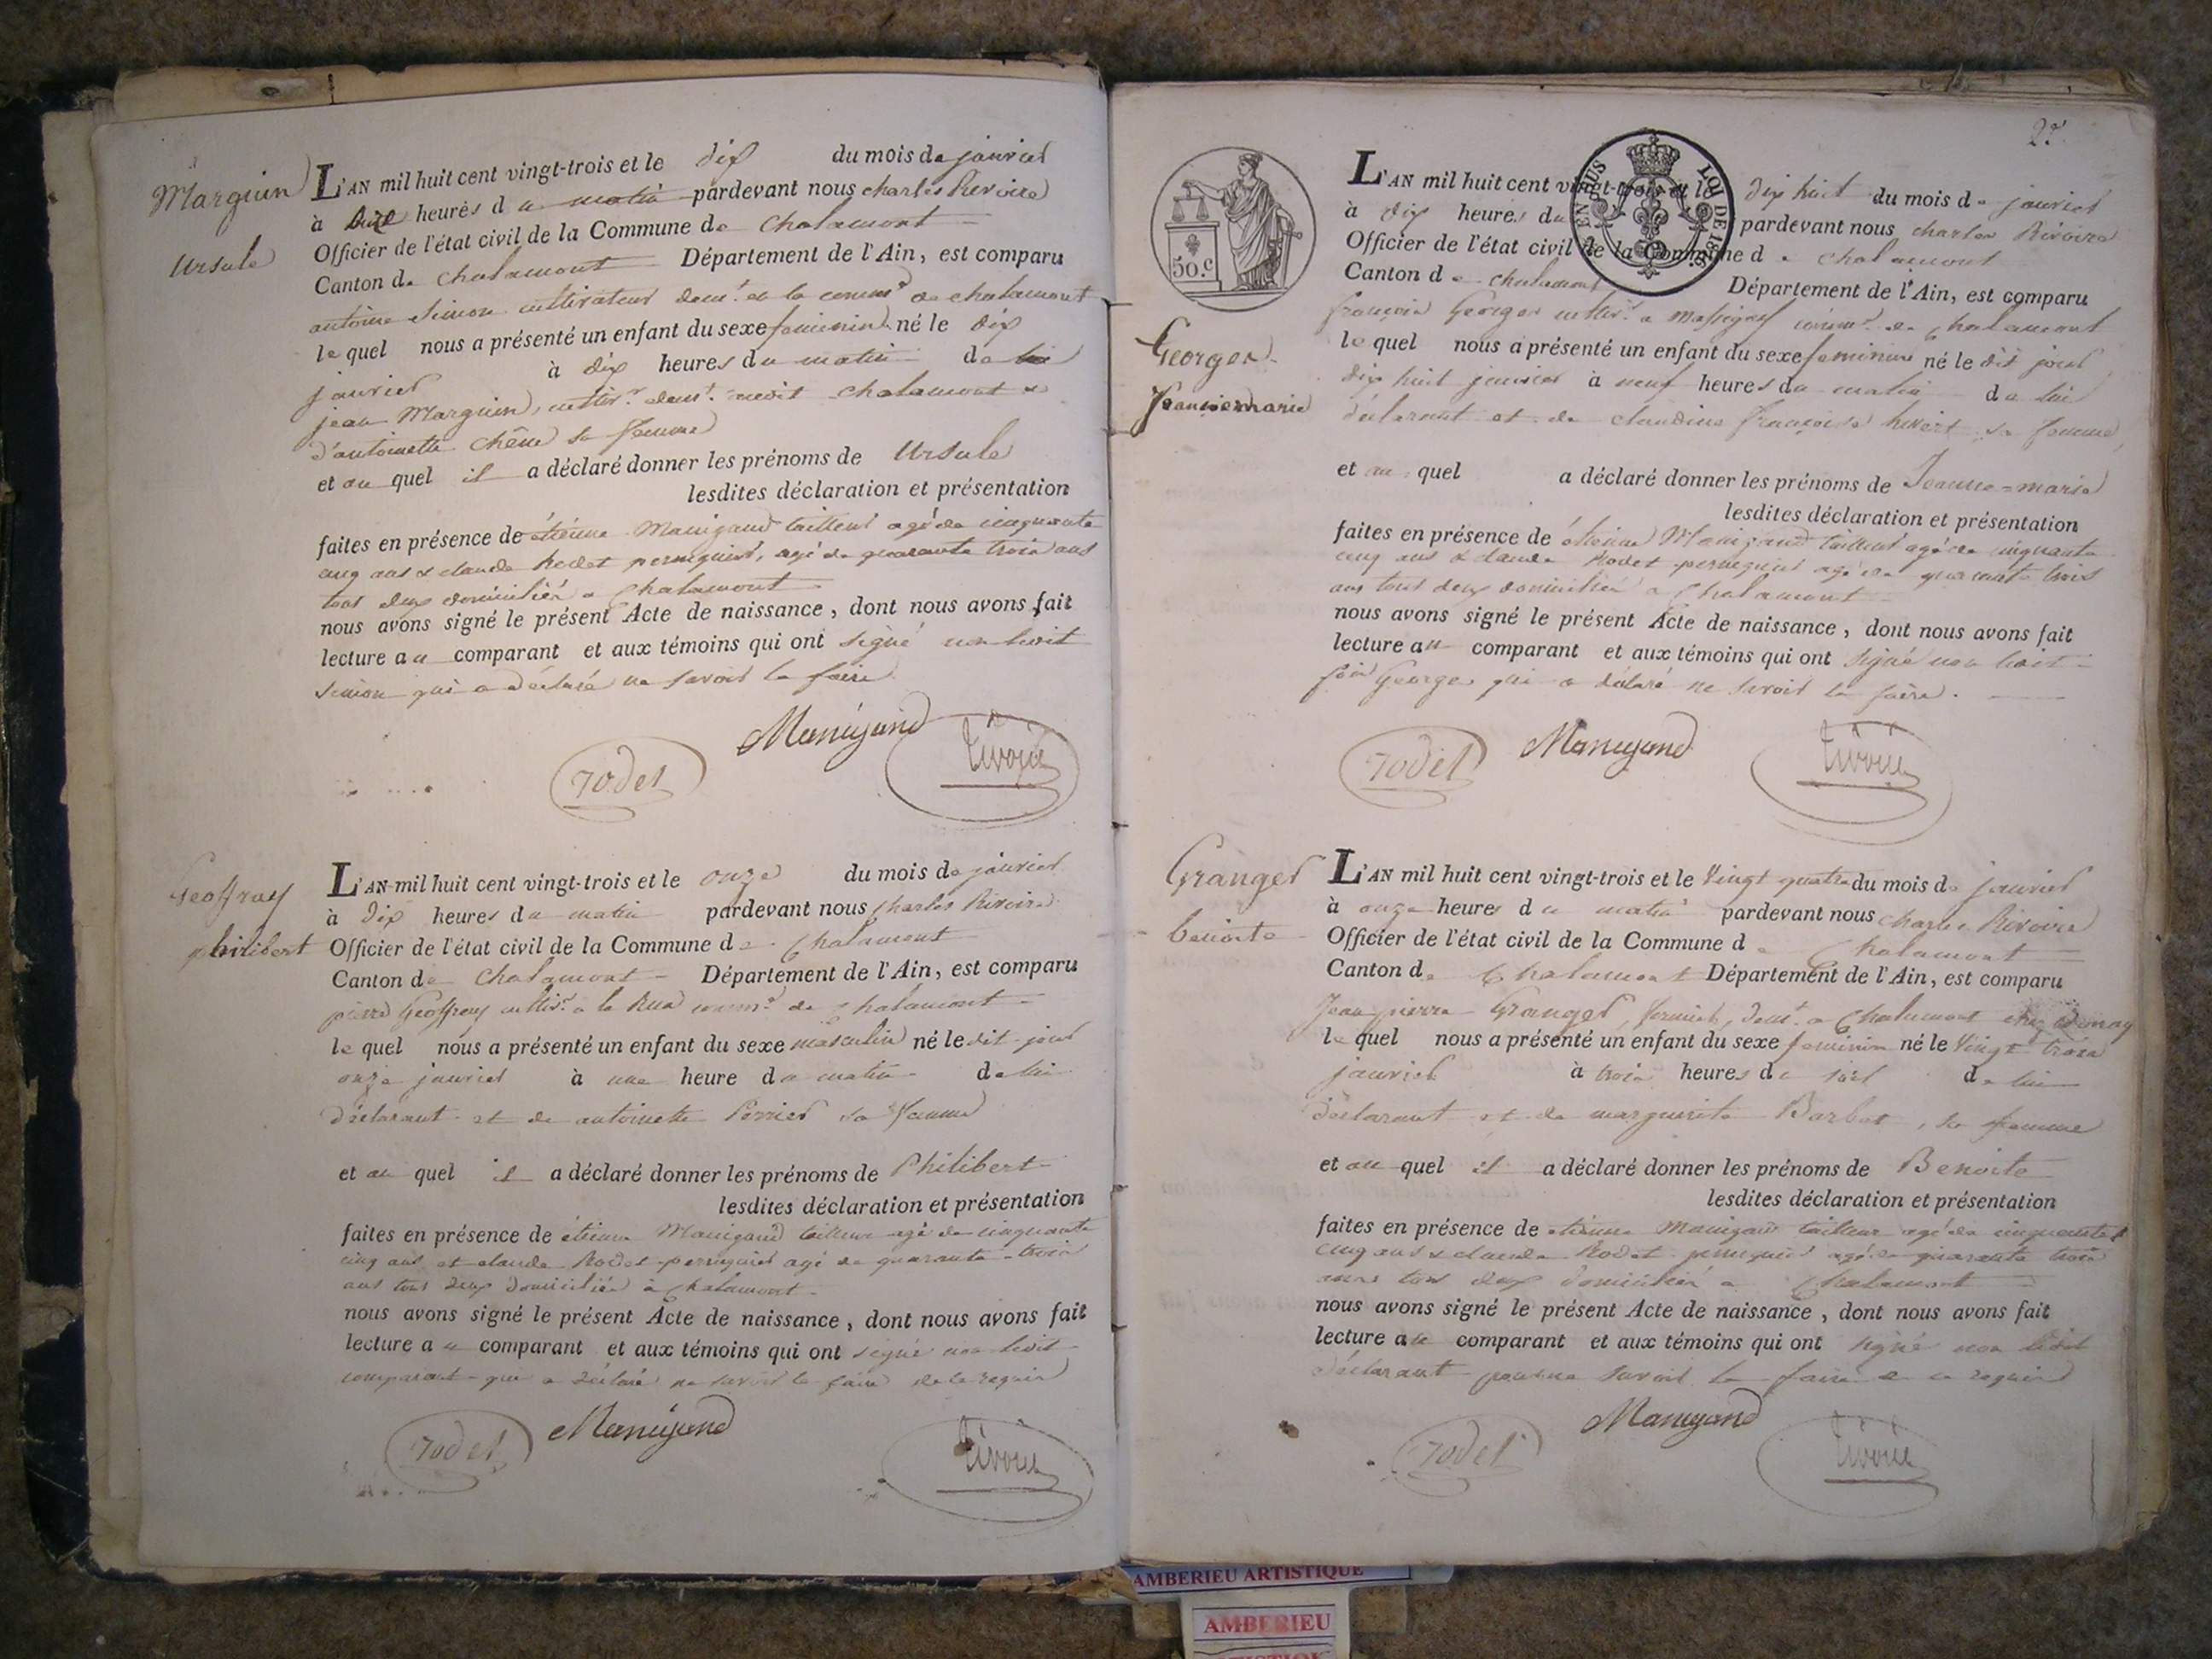 Marguin
Ursule
L'AN mil huit cent vingt-trois et le dix du mois de janvier
à heures du matin pardevant nous charles Rivoire
Officier de l'état civil de la Commune de chalamont
Canton de chalamont Département de l'Ain, est comparu
antoine Simon cultivateur demt. en la commne de chalamont
le quel nous a présenté un enfant du sexe feminin né le dix
janvier à dix heures du matin de
jean Marguin, cultivr. demt. audit chalamont &
d'antoinette chêne sa femme
et au quel il a déclaré donner les prénoms de Ursule
lesdites déclaration et présentation
faites en présence de étienne Manigand tailleur agé de cinquante
cinq ans & claude Rodet perruquier, agé de quarante trois ans
tous deux domiciliés a chalamont
nous avons signé le présent Acte de naissance, dont nous avons fait
lecture au comparant et aux témoins qui ont signé non ledit
Simon qui a déclaré ne savoir le faire
rodet Manigand rivoire
Geoffray
philibert
L'AN mil huit cent vingt-trois et le onze du mois de janvier
à dix heures du matin pardevant nous charles Rivoire
Officier de l'état civil de la Commune de chalamont
Canton de chalamont Département de l'Ain, est comparu
pierre Geoffray cultivr. a la Rua commne de chalamont
le quel nous a présenté un enfant du sexe masculin né le dit jour
onze janvier à une heure du matin de lui
déclarant et de antoinette Perrier sa femme
et au quel il a déclaré donner les prénoms de Philibert
lesdites déclaration et présentation
faites en présence de étienne Manigand tailleur agé de cinquante
cinq ans et claude Rodet perruquier agé de quarante trois
ans tous deux domiciliés à chalamont
nous avons signé le présent Acte de naissance, dont nous avons fait
lecture au comparant et aux témoins qui ont signé non ledit
comparant qui a déclaré ne savoir le faire de ce requis
rodet Manigand rivoire
50.c
EN SUS LOI DE 1816.
Georges
Jeanne marie
L'AN mil huit cent vingt-trois et le dix huit du mois de janvier
à dix heures du pardevant nous charles Rivoire
Officier de l'état civil de la Commune de chalamont
Canton de chalamont Département de l'Ain, est comparu
françois Georges cultivr. a commne de chalamont
le quel nous a présenté un enfant du sexe feminin né le dit jour
dix huit janvier à neuf heures du matin de lui
déclarant et de claudine françoise sa femme
et au quel a déclaré donner les prénoms de Jeanne-marie
lesdites déclaration et présentation
faites en présence de étienne Manigand tailleur agé de cinquante
cinq ans & claude Rodet perruquier agé de quarante trois
ans tous deux domiciliés a chalamont
nous avons signé le présent Acte de naissance, dont nous avons fait
lecture au comparant et aux témoins qui ont signé non ledit
Georges qui a déclaré ne savoir le faire.
rodet Manigand rivoire
Granger
benoite
L'AN mil huit cent vingt-trois et le Vingt quatre du mois de janvier
à onze heures du matin pardevant nous charles Rivoire
Officier de l'état civil de la Commune de chalamont
Canton de chalamont Département de l'Ain, est comparu
Jean pierre Granger, fermier, demt. a chalamont
le quel nous a présenté un enfant du sexe feminin né le Vingt trois
janvier à trois heures du soir de lui
déclarant et de marguerite Barbet, sa femme
et au quel il a déclaré donner les prénoms de Benoite
lesdites déclaration et présentation
faites en présence de étienne Manigand tailleur agé de cinquante
cinq ans & claude Rodet perruquier agé de quarante trois
ans tous deux domiciliés a chalamont
nous avons signé le présent Acte de naissance, dont nous avons fait
lecture au comparant et aux témoins qui ont signé non ledit
déclarant pour ne savoir le faire de ce requis
rodet Manigand rivoire
AMBERIEU ARTISTIQUE
AMBERIEU